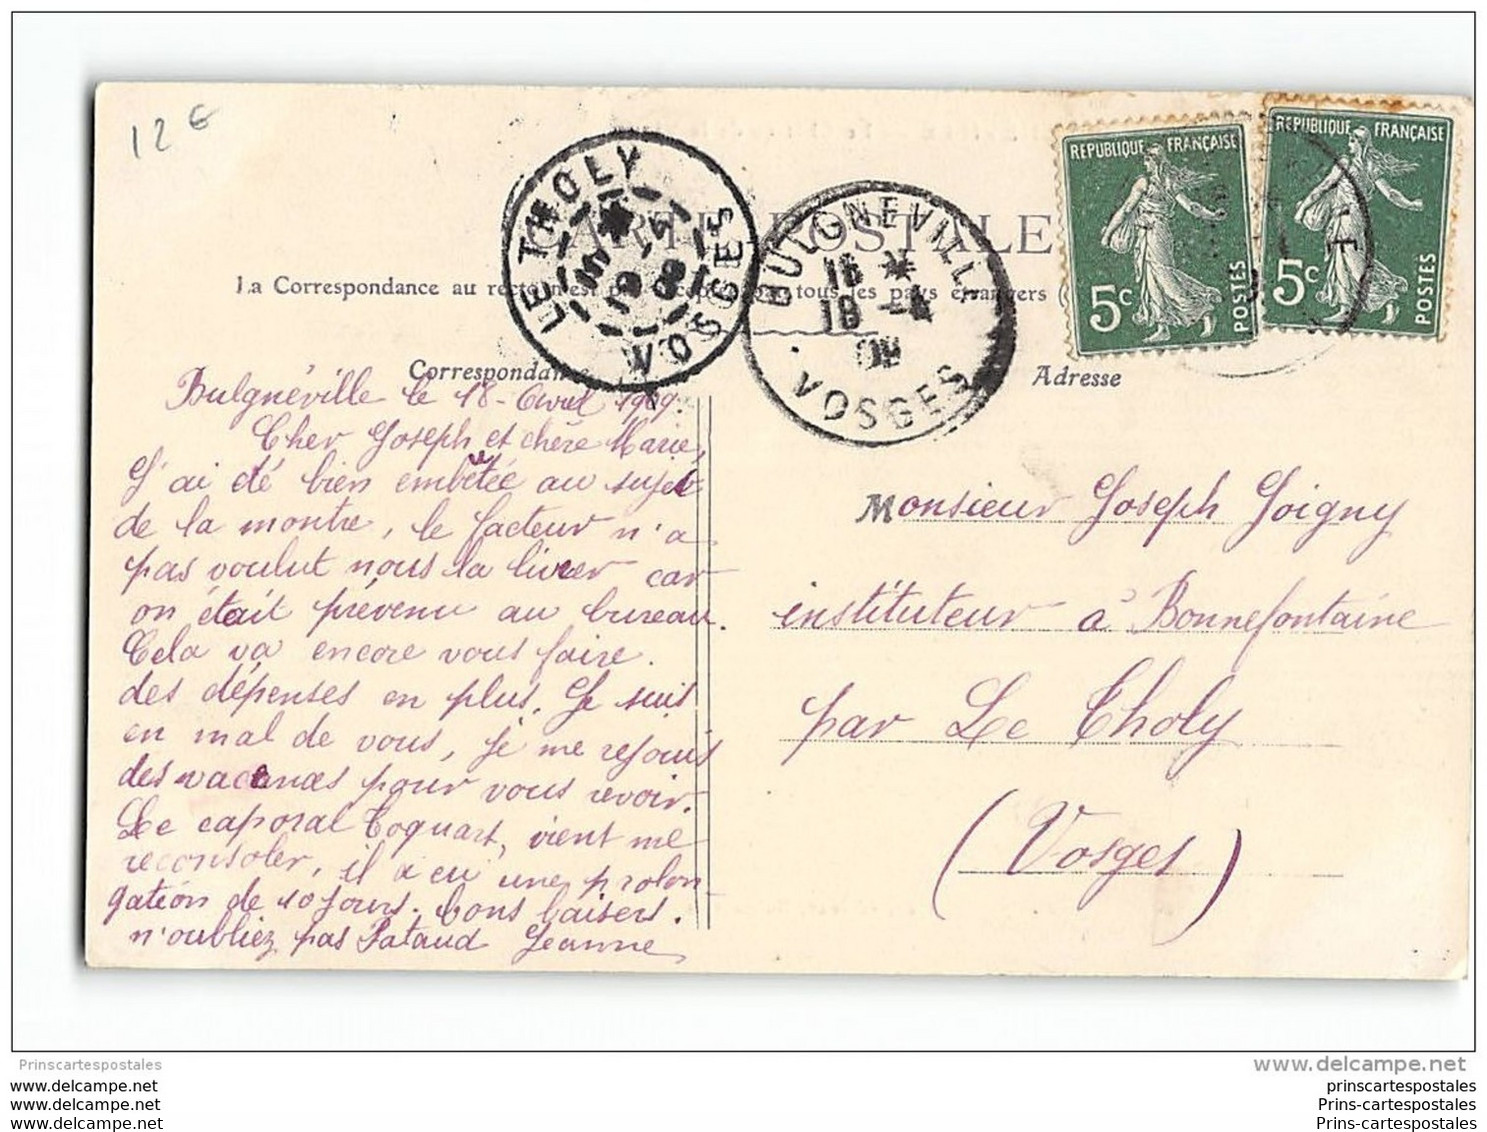 12 €
CARTE POSTALE
La Correspondance au recto n'est pas acceptée par tous les pays étrangers (
LE THOLY
VOSGES
BULGNEVILLE
16 *
18 -4
09
VOSGES
REPUBLIQUE FRANÇAISE
5c
POSTES
REPUBLIQUE FRANÇAISE
5c
POSTES
Correspondance
Adresse
Bulgnéville le 18 - Avril 1909.
Cher Joseph et chère Marie,
J'ai été bien embêtée au sujet
de la montre, le facteur n'a
pas voulut nous la livrer car
on était prévenu au bureau.
Cela va encore vous faire
des dépenses en plus. Je suis
en mal de vous, je me rejouis
des vacances pour vous revoir.
Le caporal Coquart, vient me
reconsoler, il a eu une prolon
gation de 10 jours. bons baisers.
n'oubliez pas Pataud Jeanne
Monsieur Joseph Joigny
instituteur à Bonnefontaine
par Le Tholy
(Vosges)
Prinscartespostales
www.delcampe.net
www.delcampe.net
www.delcampe.net
www.delcampe.net
prinscartespostales
Prins-cartespostales
Prins-cartespostales